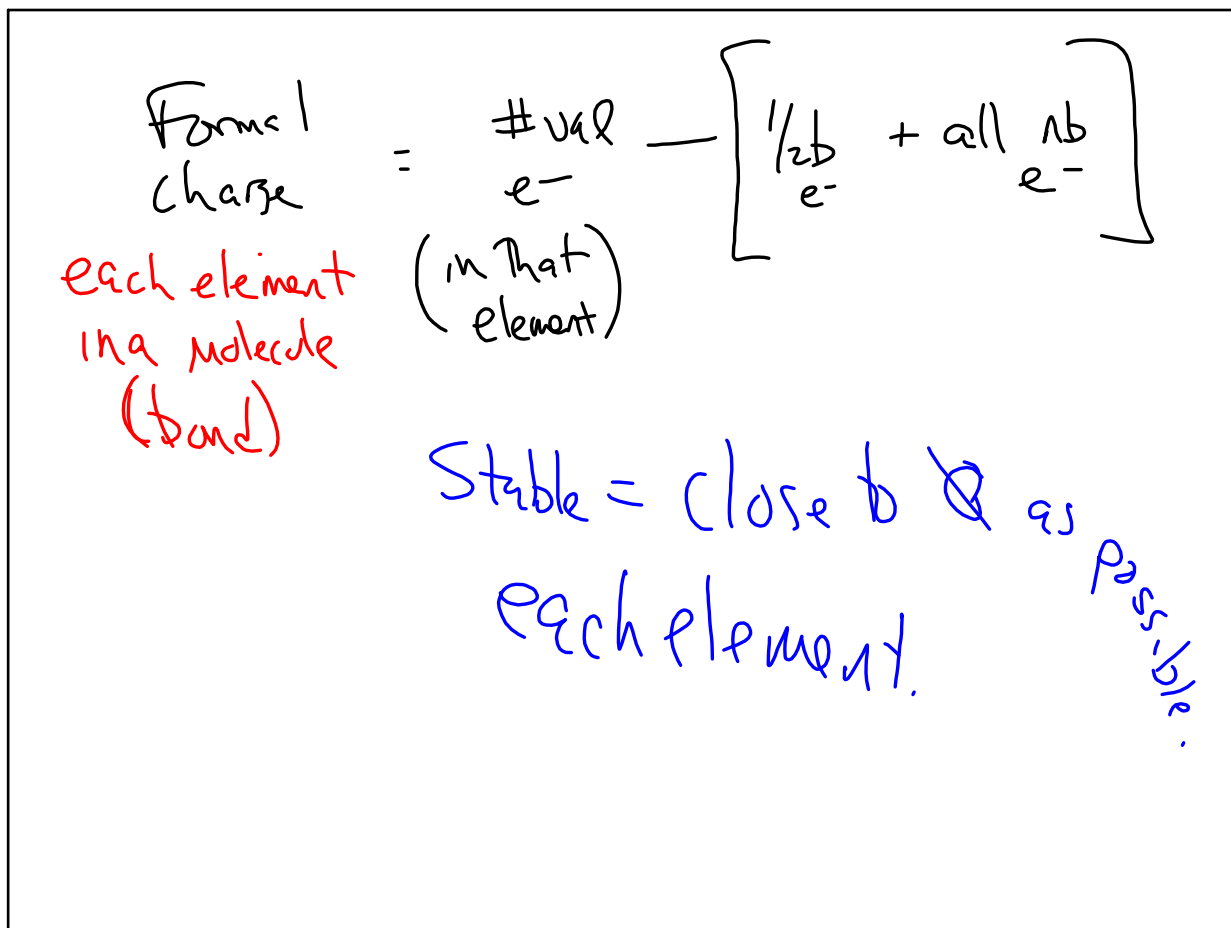 Formal charge = # val e⁻ — [ 1/2 b e⁻ + all nb e⁻ ]
(in that element)
each element
in a molecule
(bond)
Stable = close to 0 as possible.
each element.